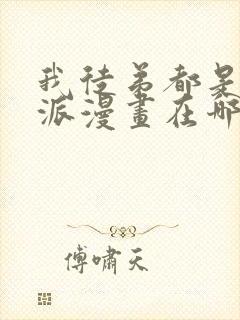 我徒弟都是
派漫畫在哪
傅嘯天